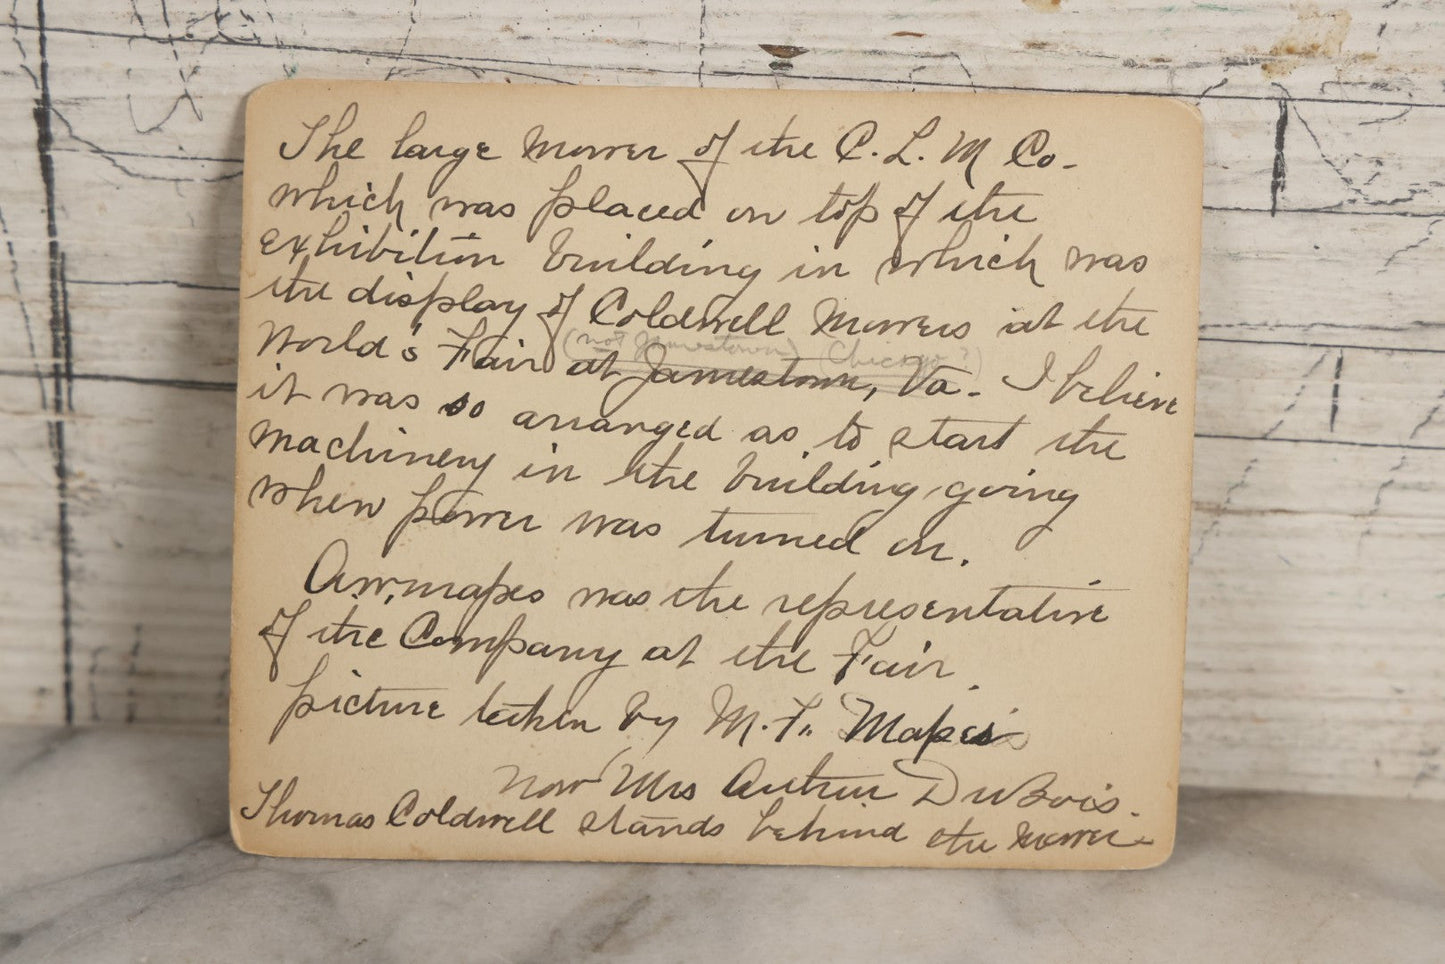 The large mower of the C. L. M Co.
which was placed on top of the
exhibition building in which was
the display of Coldwell Mowers at the
(not Jamestown) (Chicago?)
World's Fair at Jamestown, Va. I believe
it was so arranged as to start the
machinery in the building going
when power was turned on.
mapes was the representative
of the Company at the Fair.
picture taken by M. F. Mapes
now Mrs Arthur DuBois.
Thomas Coldwell stands behind the mower.